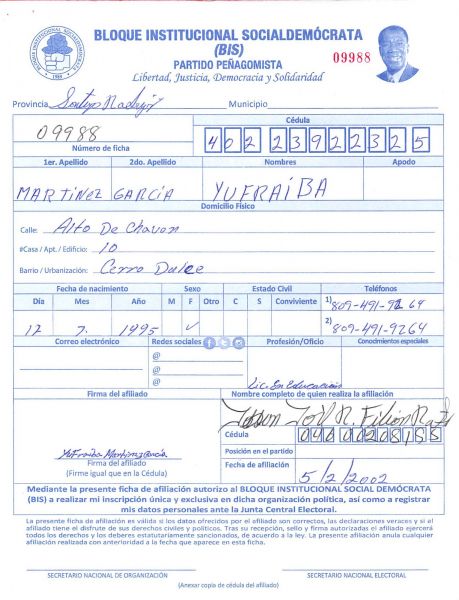 BLOQUE INSTITUCIONAL SOCIALDEMÓCRATA
(BIS)
PARTIDO PEÑAGOMISTA
Libertad, Justicia, Democracia y Solidaridad
09988
BLOQUE INSTITUCIONAL SOCIALDEMÓCRATA
Provincia Municipio
09988
Número de ficha
Cédula
40223922325
1er. Apellido 2do. Apellido Nombres Apodo
MARTINEZ GARCÍA YUFRAIBA
Domicilio Físico
Calle: Alto De Chavon
#Casa / Apt. / Edificio: 10
Barrio / Urbanización: Cerro Dulce
Fecha de nacimiento Sexo Estado Civil Teléfonos
Día Mes Año M F Otro C S Conviviente 1) 809-491-9264
17 7. 1995 ✓ 2) 809-491-9264
Correo electrónico Redes sociales Profesión/Oficio Conocimientos especiales
@
@
@
Lic. En Educación
Firma del afiliado Nombre completo de quien realiza la afiliación
Cédula
Posición en el partido
Yufraiba Martinez García
Firma del afiliado
(Firme igual que en la Cédula)
Fecha de afiliación
5/2/2002
Mediante la presente ficha de afiliación autorizo al BLOQUE INSTITUCIONAL SOCIAL DEMÓCRATA
(BIS) a realizar mi inscripción única y exclusiva en dicha organización política, así como a registrar
mis datos personales ante la Junta Central Electoral.
La presente ficha de afiliación es válida si los datos ofrecidos por el afiliado son correctos, las declaraciones veraces y si el
afiliado tiene el disfrute de sus derechos civiles y políticos. Tras su recesión, sello y firma autorizadas el afiliado ejercerá
todos los derechos y los deberes estatutariamente sancionados, de acuerdo a la ley. La presente afiliación anula cualquier
afiliación realizada con anterioridad a la fecha que aparece en esta ficha.
SECRETARIO NACIONAL DE ORGANIZACIÓN SECRETARIO NACIONAL ELECTORAL
(Anexar copia de cédula del afiliado)